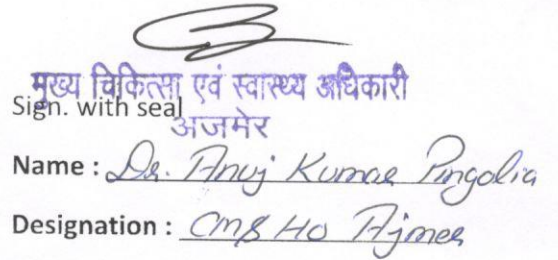 मुख्य चिकित्सा एवं स्वास्थ्य अधिकारी
Sign. with seal
अजमेर
Name : Dr. Anuj Kumar Pingolia
Designation : CM&HO Ajmer